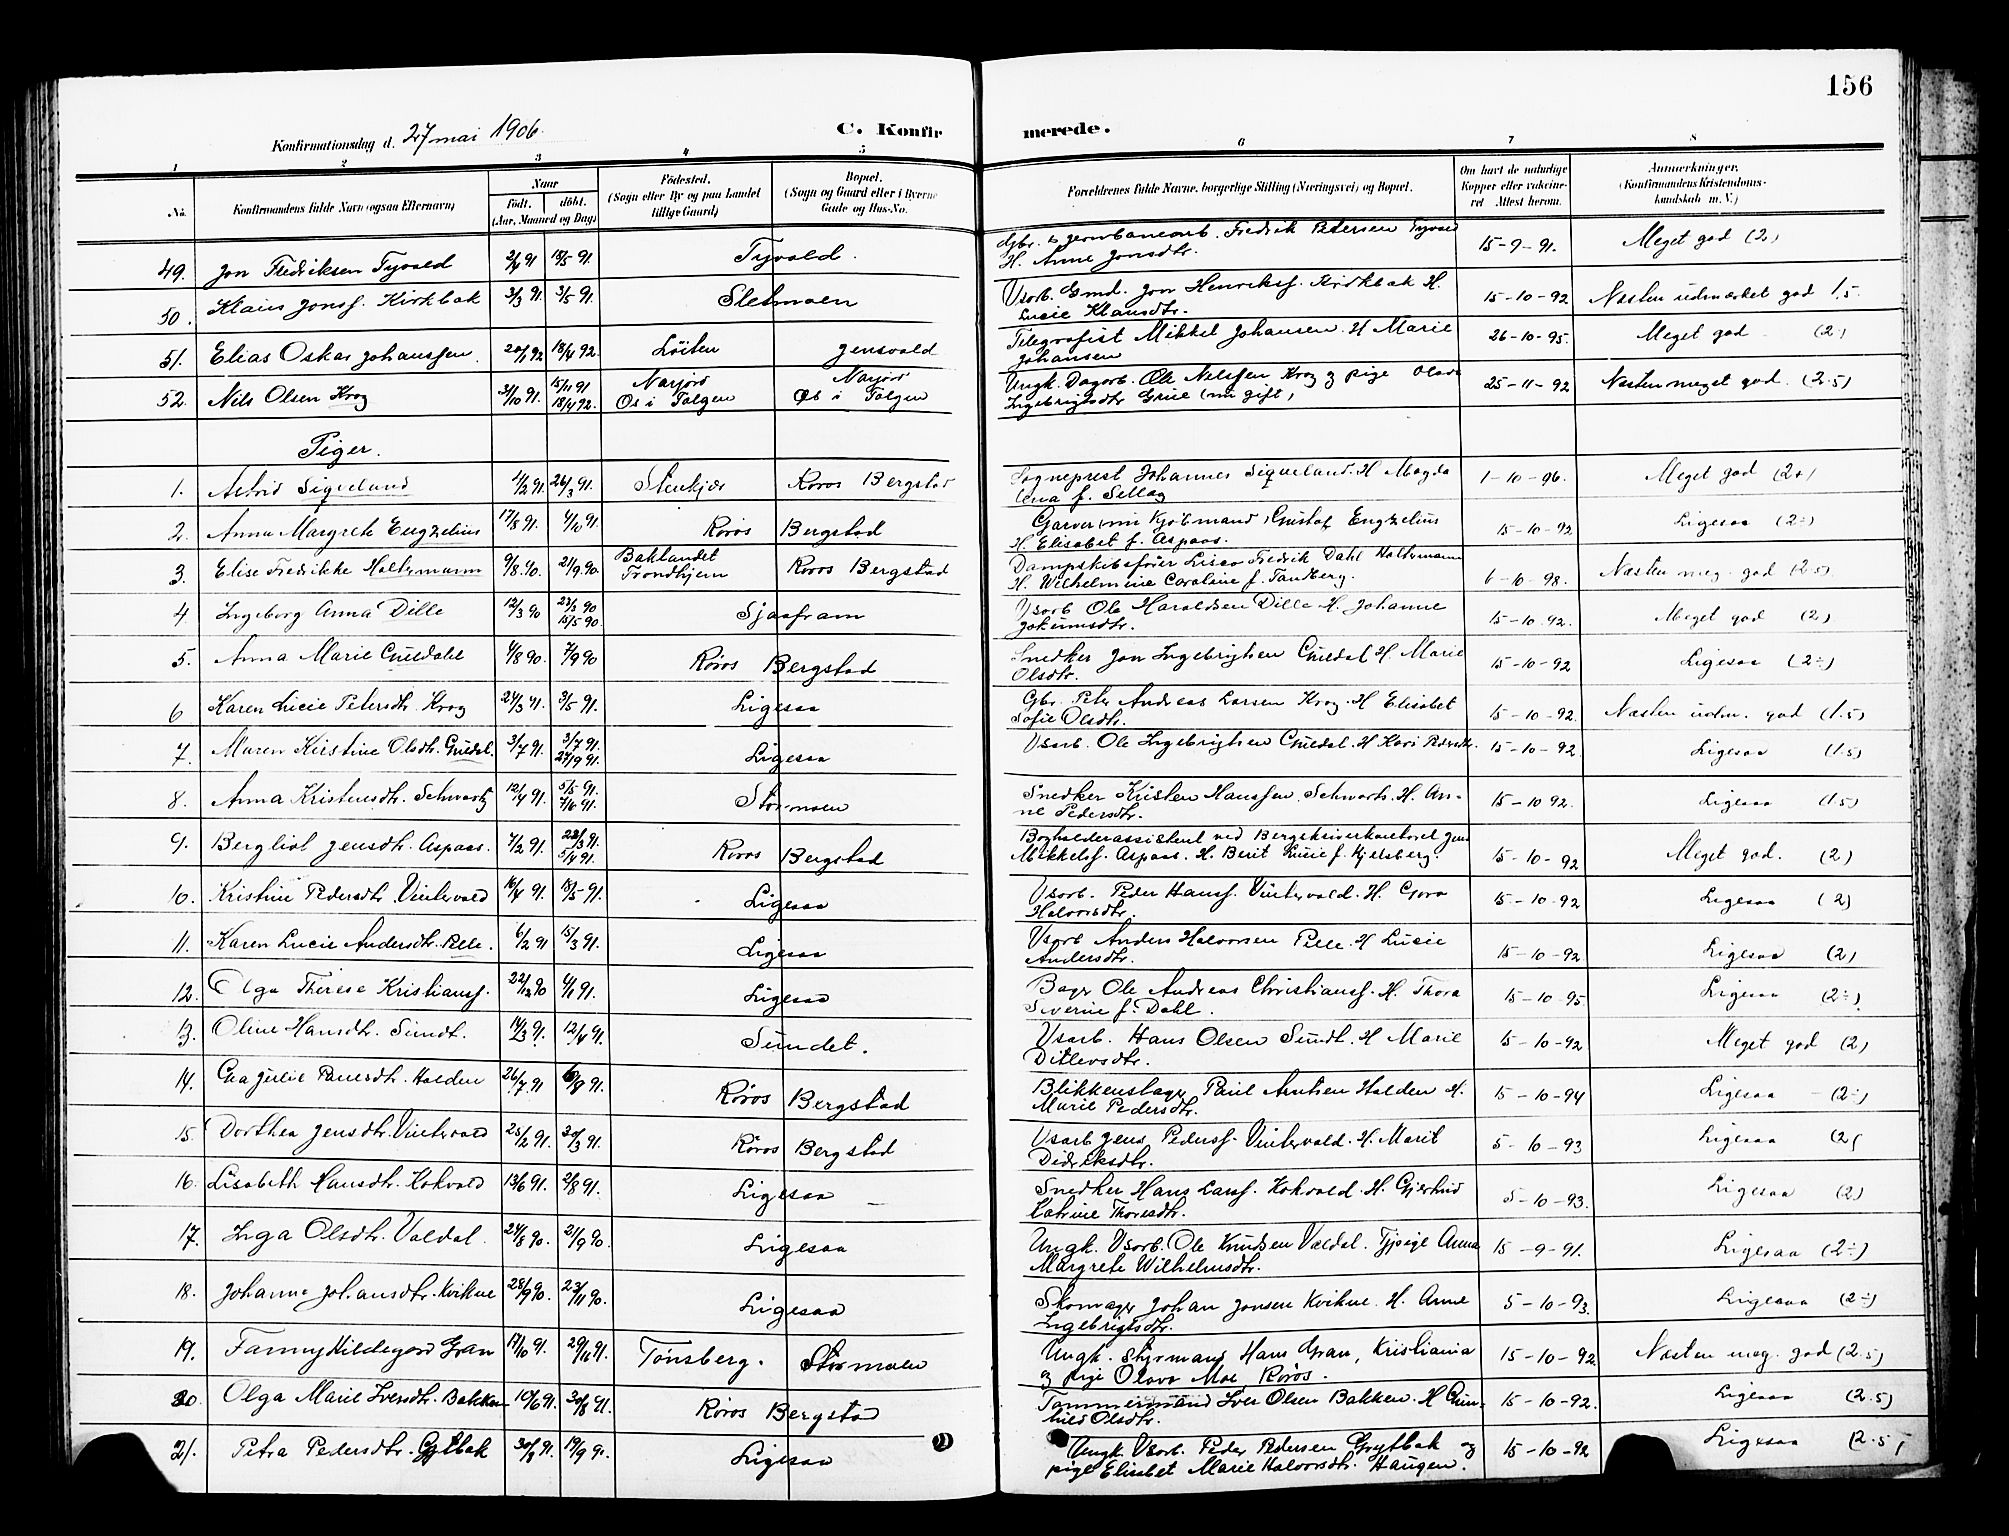 156
Konfirmationsdag d. 27 mai 1906.
C. Konfirmerede.
1 2 3 4 5 6 7 8
No. Konfirmandens fulde Navn (ogsaa Efternavn) Naar Födt. döbt. (Aar, Maaned og Dag) Födested. (Sogn eller By og paa Landet tillige Gaard) Bopæl. (Sogn og Gaard eller i Byerne Gade og Hus-No. Forældrenes fulde Navne, borgerlige Stilling (Næringsvei) og Bopæl. Om havt de naturlige Kopper eller vaccineret Attest herom. Anmerkninger. (Konfirmandens Kristendomskundskab m. V.)
49. Jon Fredriksen Tyvold 2/4 91 18/5 91. Tyvold. Gbr. og jernbanearb. Fredrik Petersen Tyvold H. Anne Jonsdtr. 15-9-91. Meget god (2)
50. Klaus Jonsf. Kirkbak 3/3 91. 3/5 91. Sletmoen Vsarb. Gmd. Jon Henriksf. Kirkbak H. Lucie Klausdtr. 15-10-92 Næsten udmerket god 1.5.
51. Elias Oskar Johanssen. 20/1 92 18/4 92. Löiten Jensvold Telegrafist Mikkel Johansen. H Marie Johansen 26-10-95. Meget god (2)
52. Nils Olsen Krog 31/10 91. 15/11 91 18/4 92. Narjord Os i Tolgen Narjord Os i Tolgen Ungk. Dagarb. Ole Nilssen Krog og pige Olava Ingebrigtsdtr Grue (nu gift) 25-11-92 Næsten meget god. (2.5)
Piger.
1. Astrid Siqveland 1/2 91. 26/3 91. Stenkjær Röros Bergstad Sogneprest Johannes Siqveland. H Magdalena f. Selleg 1-10-96. Meget god (2+)
2. Anna Margrete Engzelius 17/8 91. 4/10 91. Röros Bergstad Garver (nu Kjöbmand) Gustaf Engzelius H. Elisabet f. Aspaas. 15-10-92 Ligesaa (2÷)
3. Elise Fredrikke Holtermann 9/8 90. 21/9 90. Baklandet Trondhjem Röros Bergstad Dampskibsförer Lisco Fredrik Dahl Holtermann H. Wilhelmine Caroline f. Tandberg. 6-10-98. Næsten meg. god (2.5)
4 Ingeborg Anna Dille 12/3 90 23/3 90 15/5 90 Sjaafram Vsarb Ole Haraldsen Dille H. Johanne Jokumsdtr. 15-10-92. Meget god (2)
5. Anna Marie Guldahl 4/8 90. 7/9 90 Röros Bergstad Snedker Jon Ingebrigtsen Guldal H. Marie Olsdtr. 15-10-92 Ligesaa (2÷)
6 Karen Lucie Petersdtr. Krog 24/3 91. 3/5 91. Ligesaa Gbr. Peter Andreas Larsen Krog. H Elisabet Sofie Olsdtr. 15-10-92. Næsten udm. god (1.5)
7. Maren Kirstine Olsdtr. Guldal. 3/7 91. 3/7 91. 27/9 91. Ligesaa Vsarb. Ole Ingebrigtsen Guldal. H Kari Pedersdtr. 15-10-92 Ligesaa (1.5)
8. Anna Kristensdtr. Schwartz 12/4 91. 5/5 91. 7/6 91. Stormoen Snedker Kristen Hanssen Schwartz. H. Anne Pedersdtr. 15-10 92. Ligesaa (1.5)
9. Bergliot Jensdtr. Aspaas. 7/2 91. 22/3 91. 5/4 91. Röros Bergstad Bogholderassistent ved Bergskriverkontoret Jens Mikkelsf. Aspaas. H. Berit Lucie f. Kjelsberg. 15-10-92 Meget god. (2)
10. Kristine Pedersdtr Vintervold 16/4 91. 18/5 91. Ligesaa Vsarb. Peder Hansf. Vintervold. H. Guro Halvorsdtr. 15-10-92 Ligesaa (2)
11. Karen Lucie Andersdtr. Pelle. 6/2 91 15/3 91. Ligesaa Vsarb Anders Halvorsen Pelle. H Lucie Andersdtr. 15-10-92 Ligesaa (2)
12. Olga Therese Kristiansf. 22/12 90 4/1 91. Ligesaa Bager Ole Andreas Christiansf. H. Thora Severine f. Dahl. 15-10-95 Ligesaa (2÷)
13. Oline Hansdtr. Sundt. 14/3 91. 12/4 91. Sundet. Vsarb. Hans Olsen Sundt. H Marie Ditlevsdtr. 15-10-92 Meget god (2)
14. Eva Julie Paulsdtr. Holden 26/7 91 6/8 91. Röros Bergstad Blikkenslager Paul Arntsen Holden H. Marie Pedersdtr. 15-10-94 Ligesaa (2÷)
15. Dorthea Jensdtr. Vintervold 25/2 91. 30/3 91. Röros Bergstad Vsarb Jens Pedersf. Vintervold. H. Marit Didriksdtr. 5-10-93 Ligesaa (2)
16. Lisabeth Hansdtr. Kokvold 13/6 91. 2/8 91. Ligesaa Snedker Hans Larsf. Kokvold. H. Gjertrud Catrine Thoresdtr. 5-10-93. Ligesaa (2)
17. Inga Olsdtr. Valdal. 24/8 90. 21/9 90. Ligesaa Ungk. Vsarb. Ole Knudsen Valdal. Tjpige Anna Margrete Wilhelmsdtr. 15-9-91. Ligesaa (2÷)
18. Johanne Johansdtr. Kvikne 28/9 90. 23/11 90. Ligesaa Skomager Johan Jonsen Kvikne. H. Anne Ingebrigtsdtr. 5-10-93. Ligesaa (2÷)
19. Fanny Hildegard Gran 17/10 91. 29/11 91. Tönsberg. Stormoen Ungk. Styrmand Hans Gran, Kristiania og pige Olava Moe Röros. 15-10-92 Næsten meg. god (2.5)
20. Olga Marie Iversdtr. Bakken 10/6 91. 30/8 91. Röros Bergstad Tömmermand Iver Olsen Bakken. H Gunhild Olsdtr. 15-10-92. Ligesaa (2.5)
21. Petra Pedersdtr. Grytbak 30/8 91. 19/9 91. Ligesaa Ungk Vsarb. Peder Pedersen Grytbak og pige Elisabet Marie Halvorsdtr. Haugen. 15-10-92 Ligesaa (2.5)